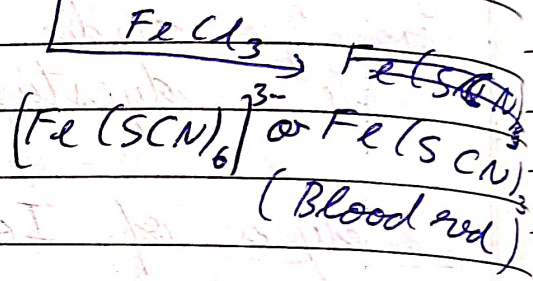 FeCl3
Fe(SCN)3
[Fe(SCN)6]3- or Fe(SCN)3
(Blood red)